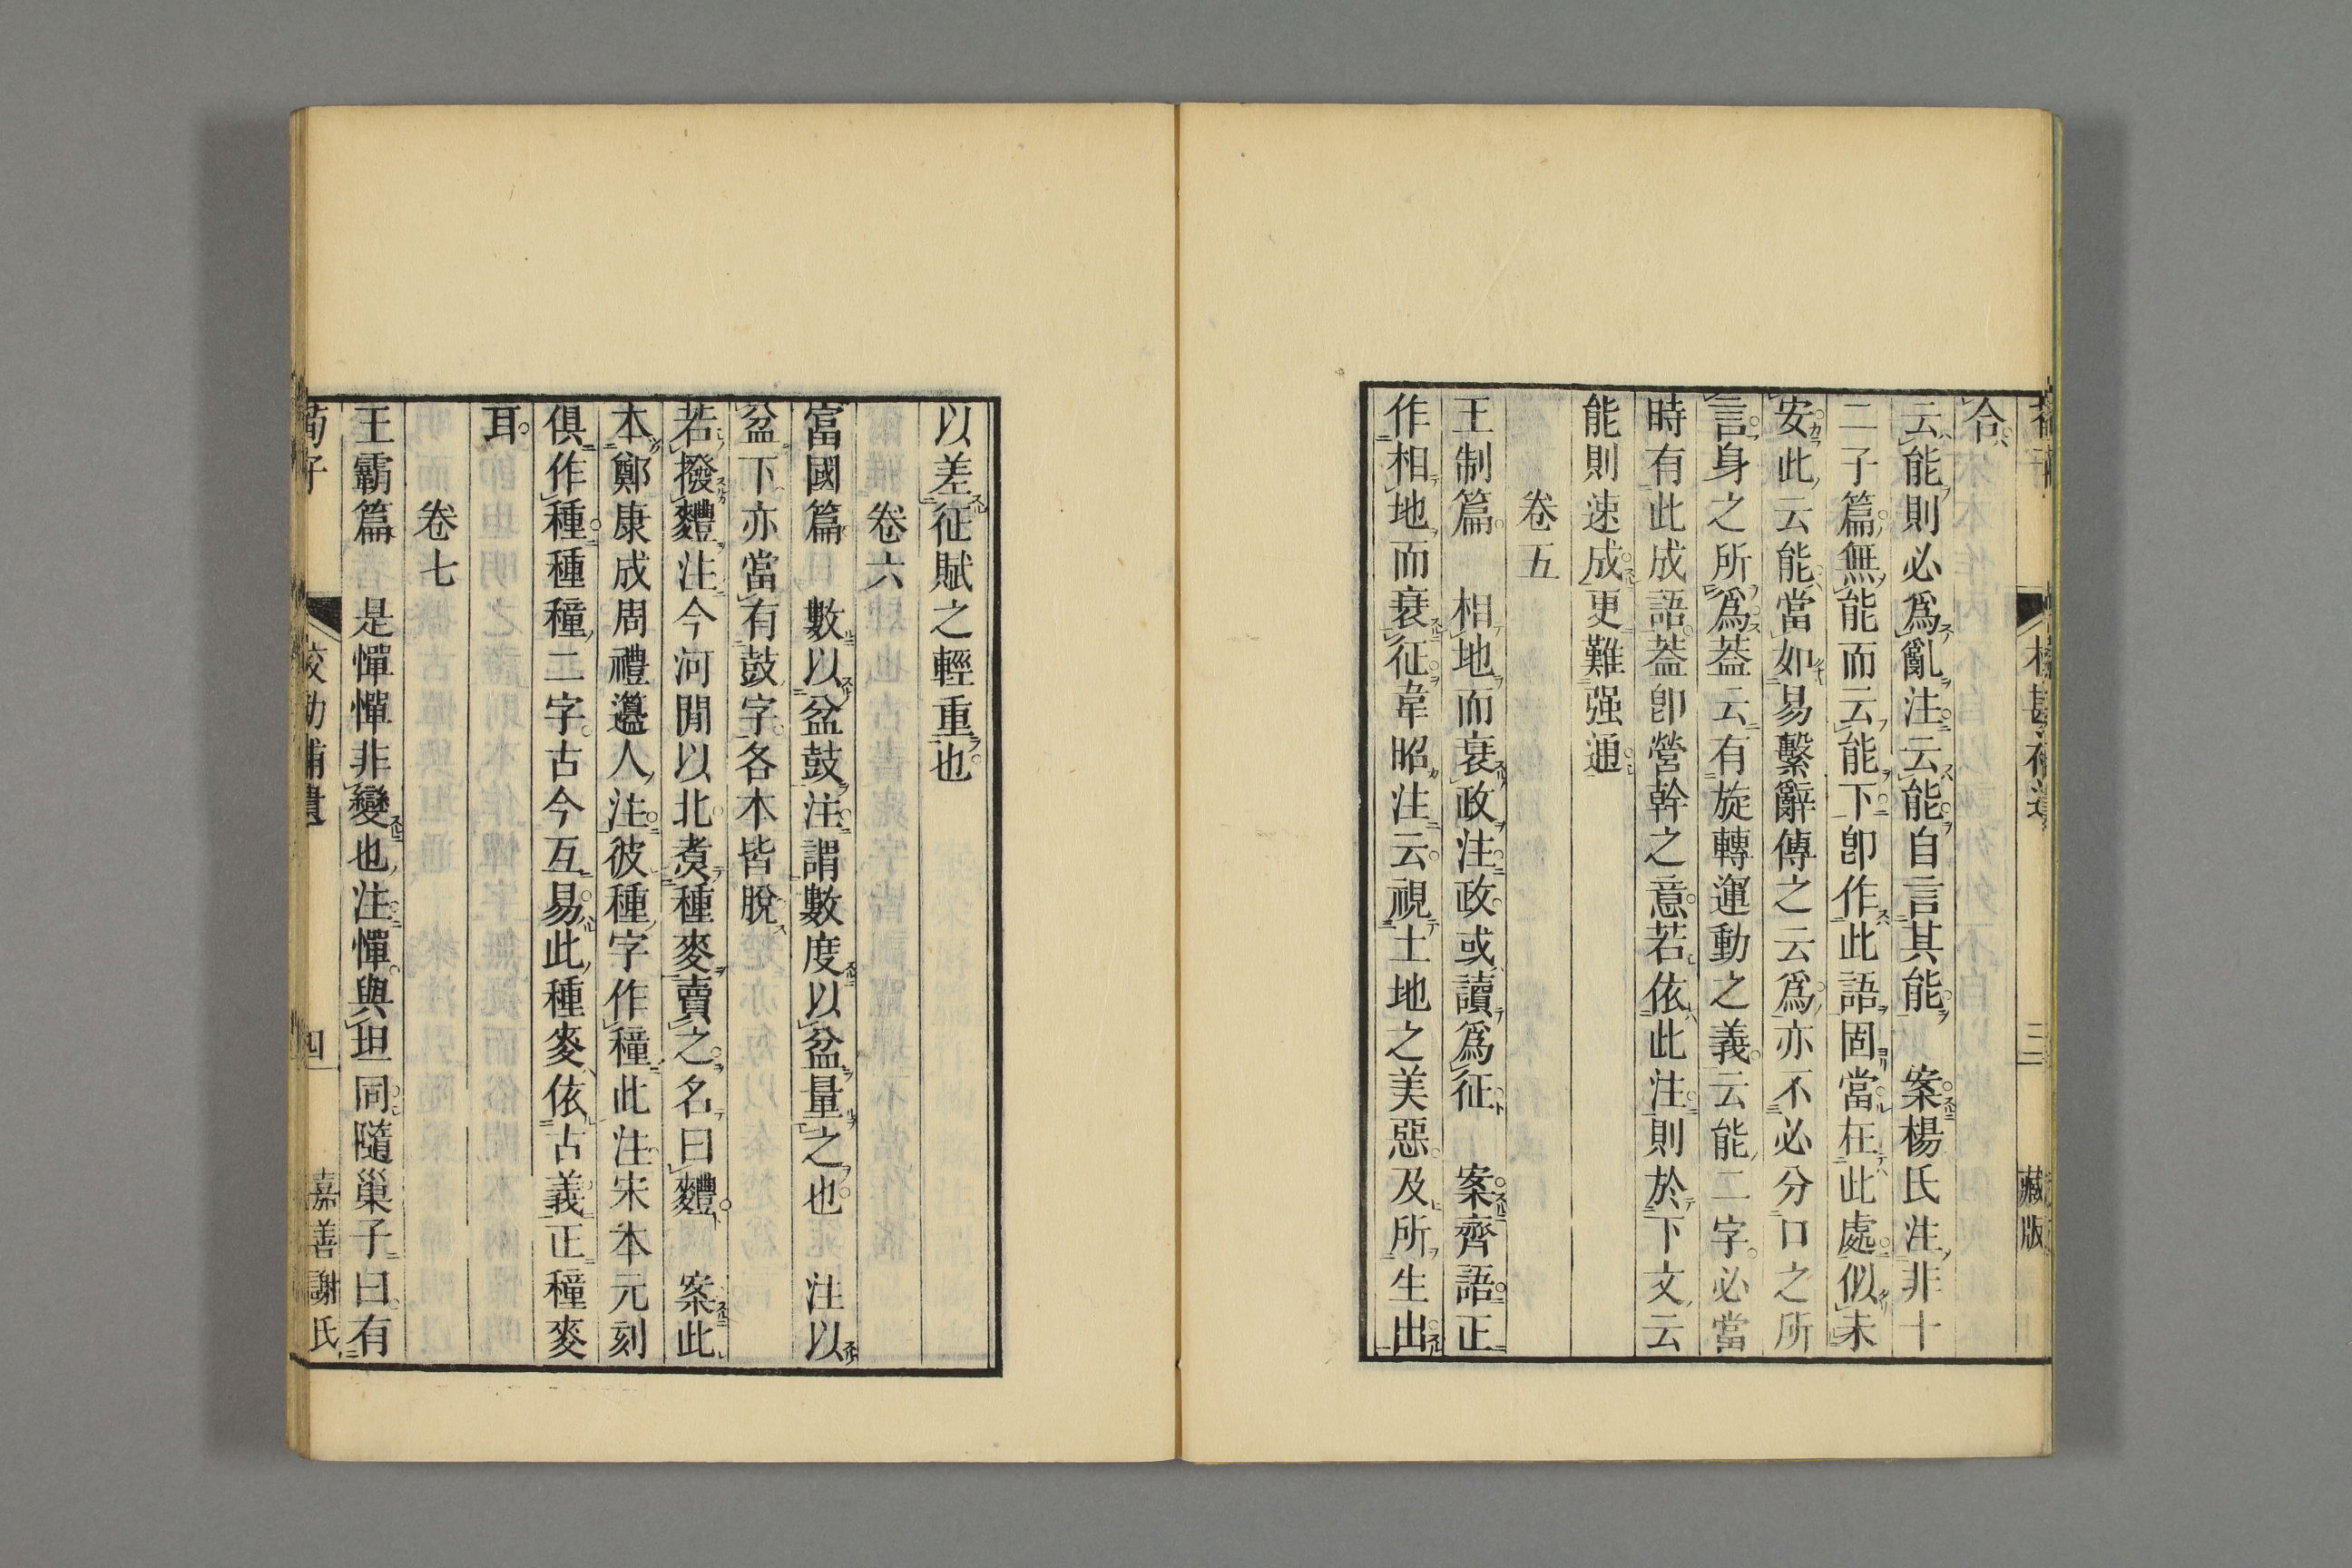 合
云能則必爲亂注云能自言其能 案楊氏注非十
二子篇無能而云能下卽作此語固當在此處似未
安此云能當如易繫辭傳之云爲亦不必分口之所
言身之所爲葢云有旋轉運動之義云能二字必當
時有此成語葢卽營幹之意若依此注則於下文云
能則速成更難强通
卷五
王制篇 相地而衰政注政或讀爲征 案齊語正
作相地而衰征韋昭注云視土地之美惡及所生出
藏版
以差征賦之輕重也
卷六
富國篇 數以盆鼓注謂數度以盆量之也 注以
盆下亦當有鼓字各本皆脫
若撥麷注今河閒以北煑種麥賣之名曰麷 案此
本鄭康成周禮籩人注彼種字作穜此注宋本元刻
俱作種種穜二字古今互易此種麥依古義正穜麥
耳
卷七
王霸篇 是憚憚非變也注憚與坦同隨巢子曰有
荀子
校勘補遺
四
嘉善謝氏